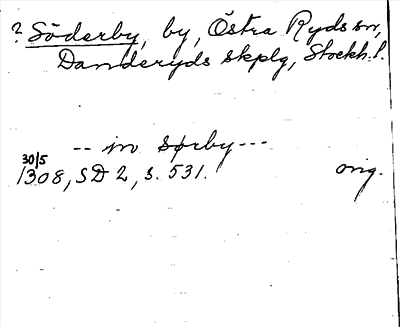 ? Söderby, by, Östra Ryds sn,
Danderyds skplg, Stockh. l.
-- in sørby ---
30/5
1308, SD 2, s. 531. orig.